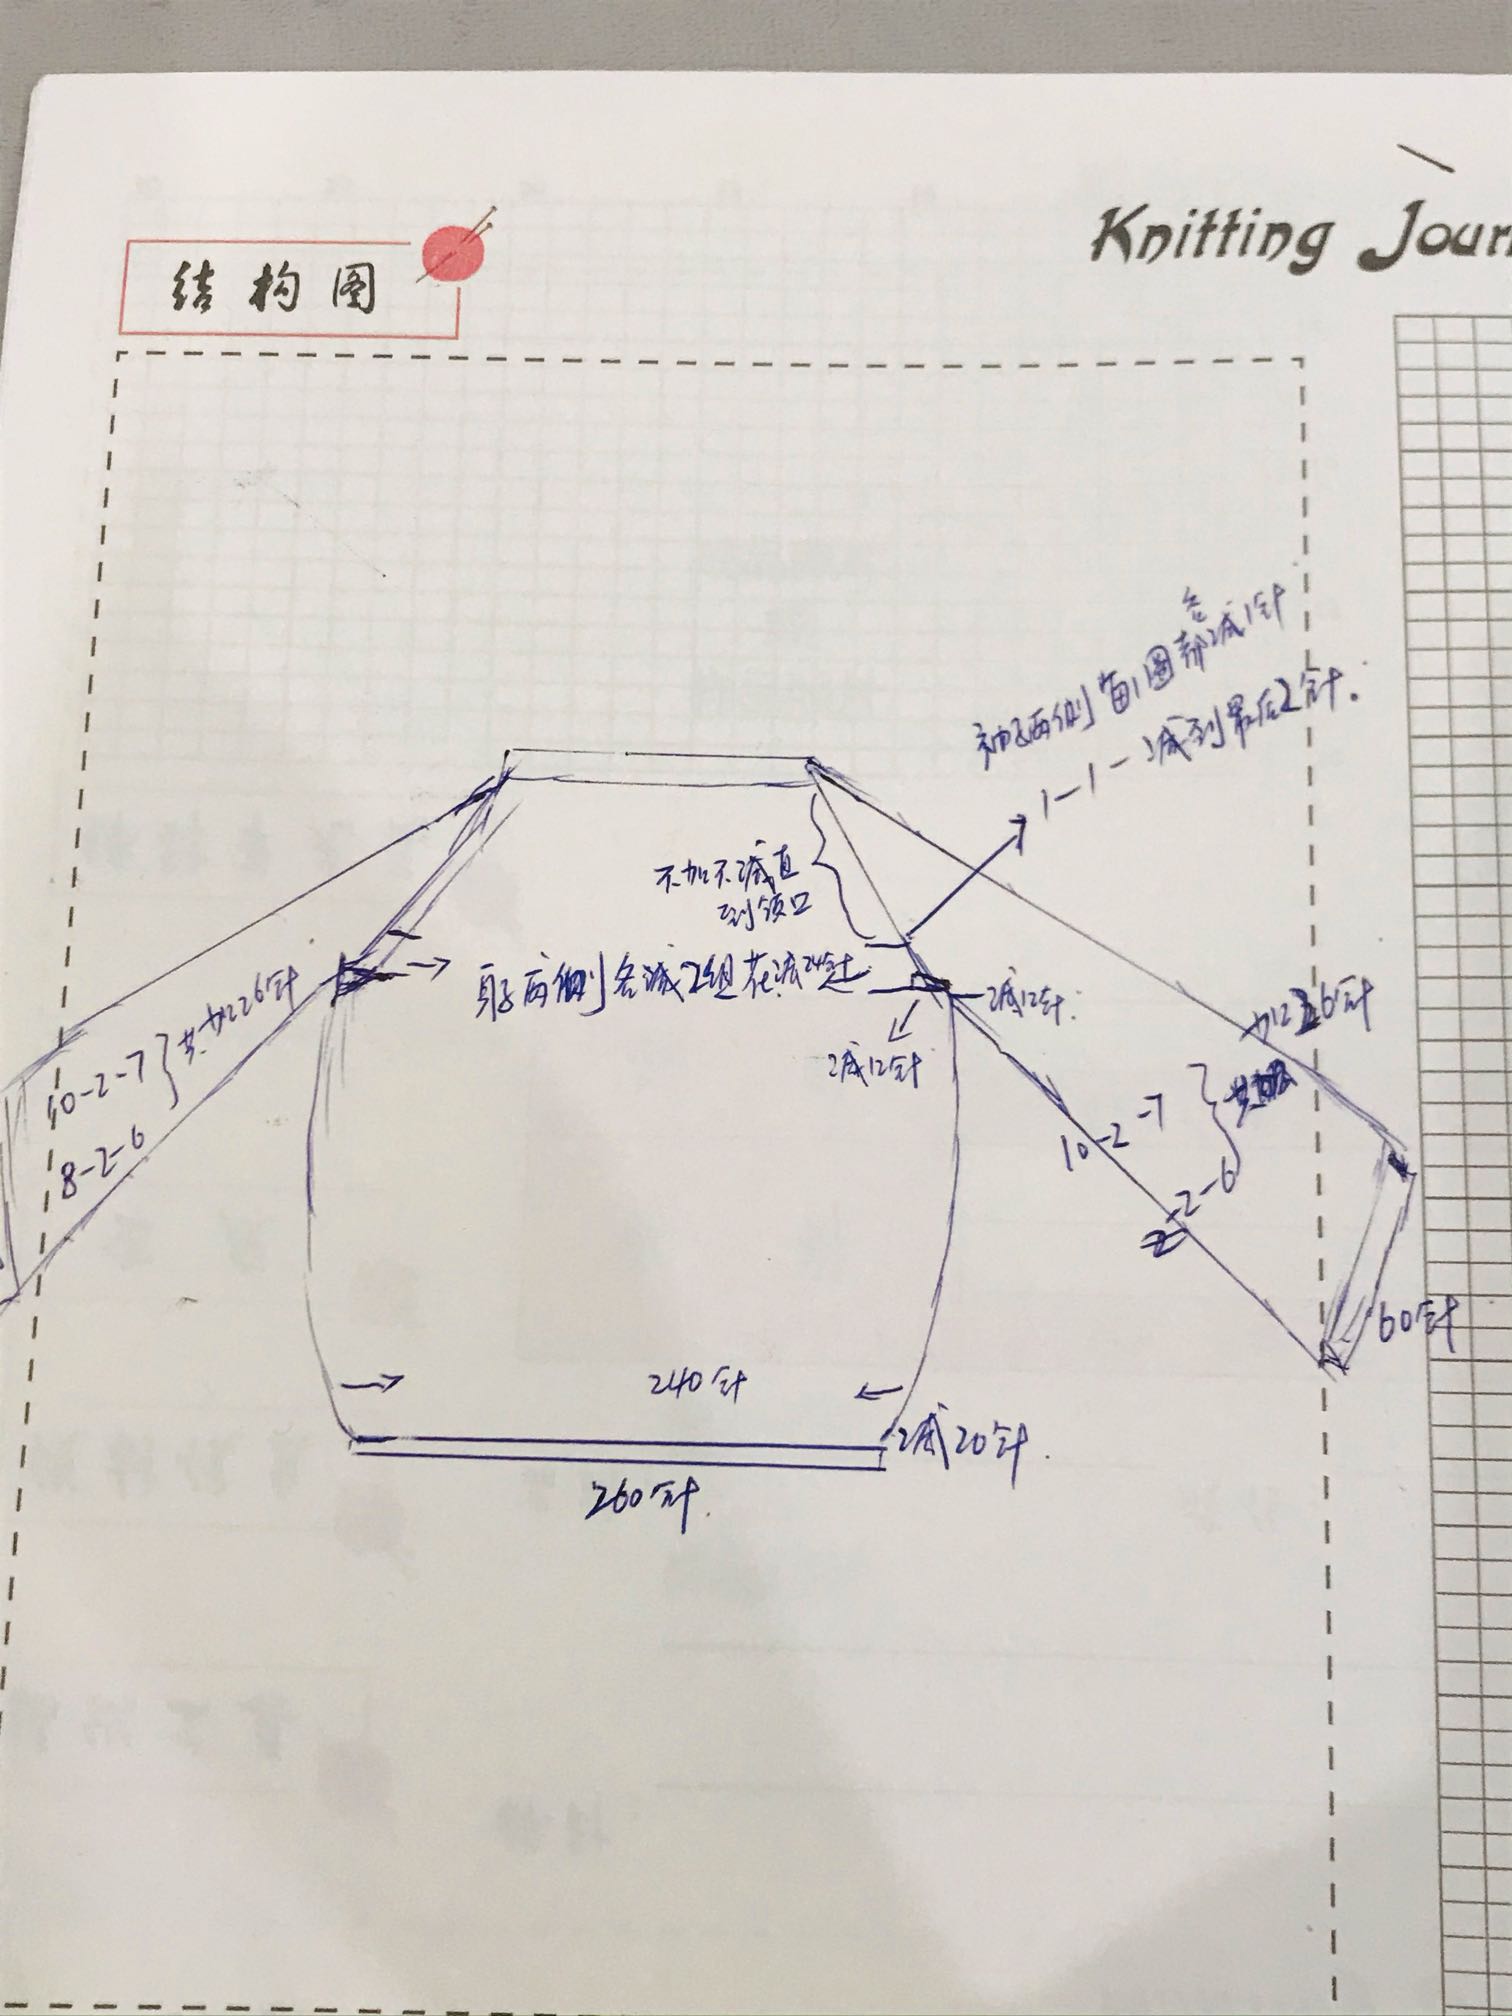 结构图
Knitting Jour
袖子两侧每1圈各减1针
1-1-减到最后2针。
不加不减直
到领口
身子两侧各减2组花法24针
减12针.
减12针
共加26针
10-2-7
8-2-6
加26针
10-2-7
-2-6
60针
240针
减20针.
260针.